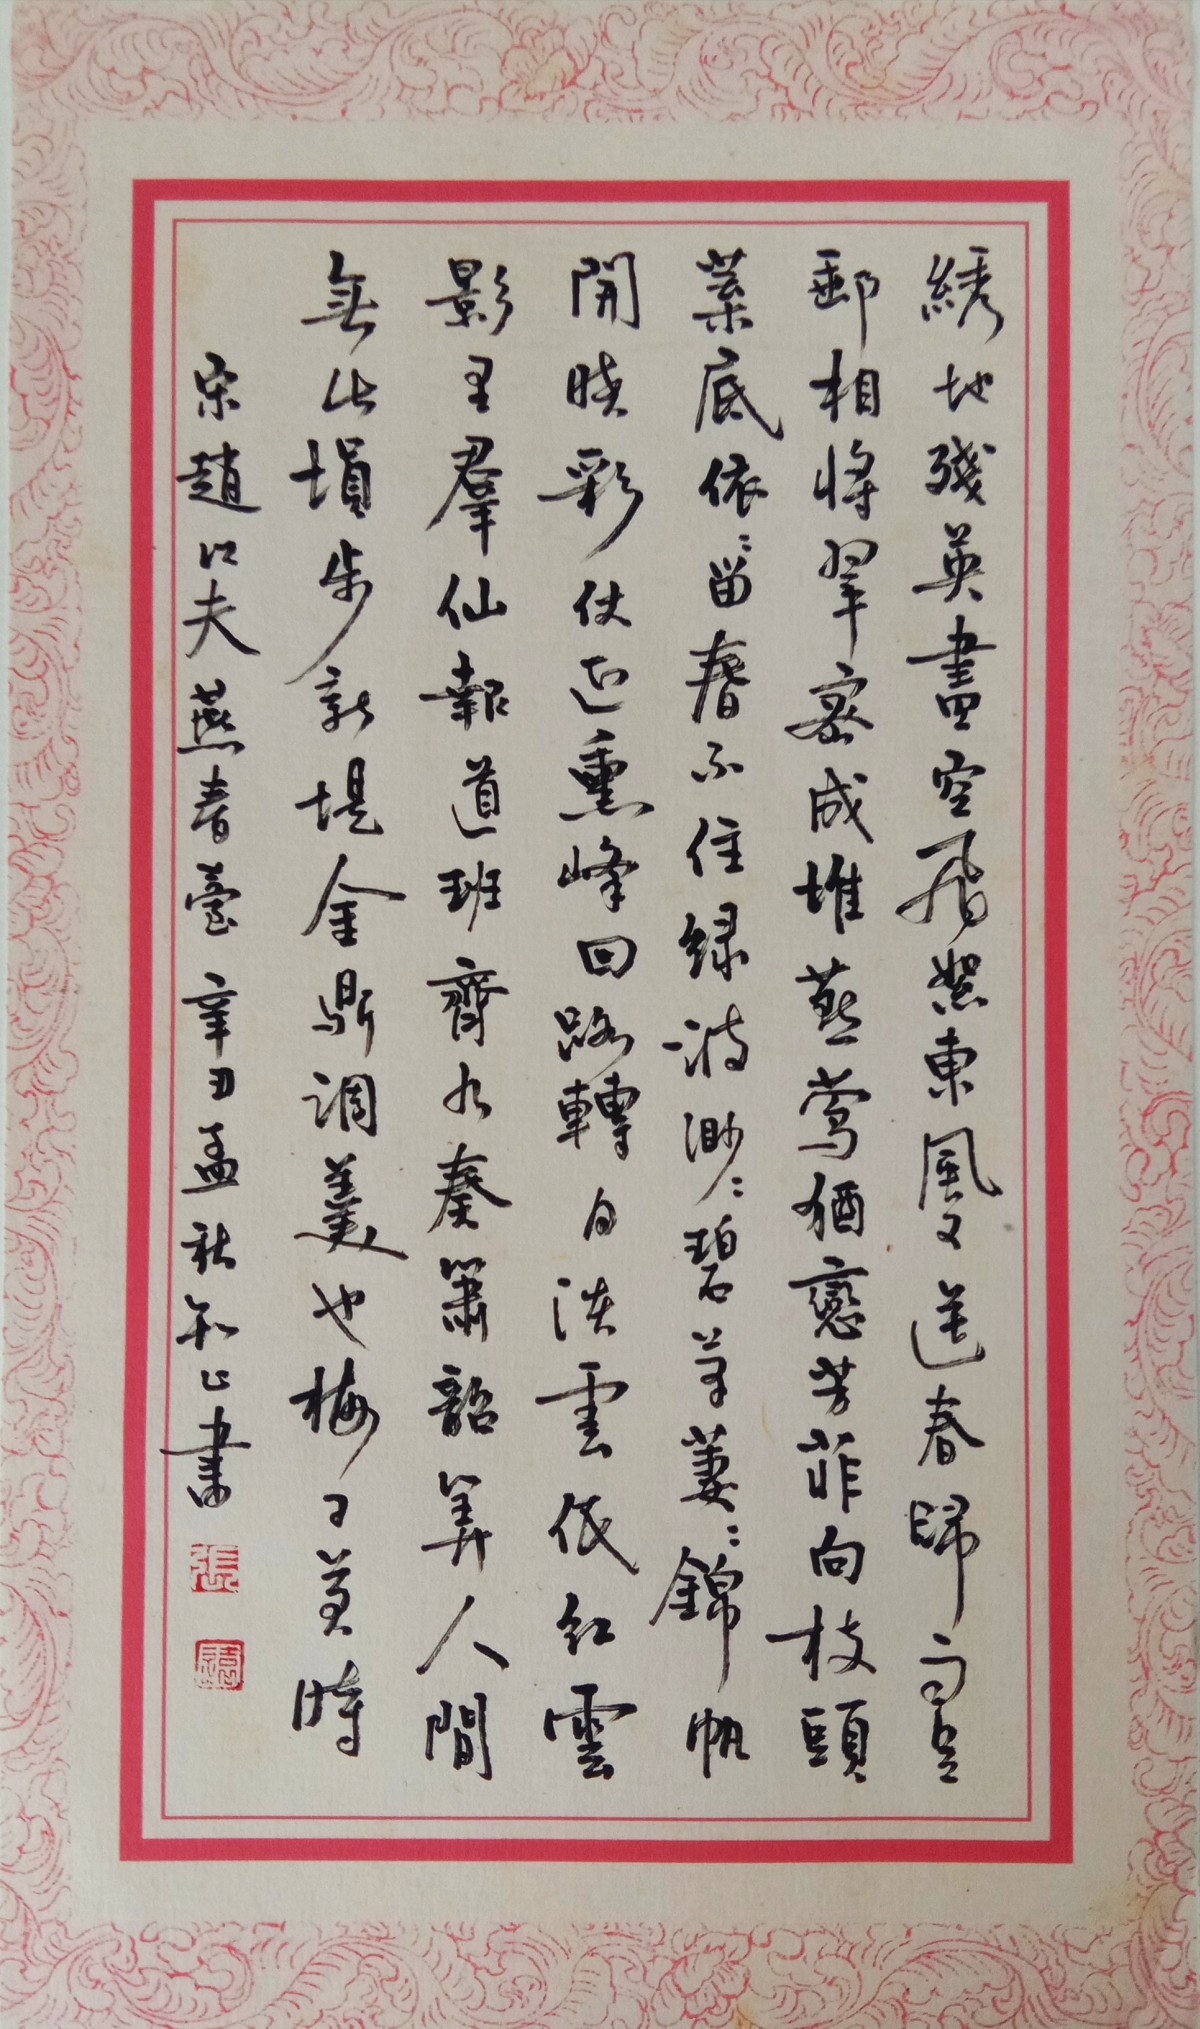 綉地殘英畫空飛絮東風又送春歸
郵相將翠密成堆燕鶯猶戀芳菲向枝頭
葉底依依留春不住綠波渺渺碧草萋萋錦帆
開曉彩仗迎熏峰回路轉日淡雲低紅雲
影里羣仙報道班齊九奏簫韶算人間
無此塤步新堤金鼎調羹也梅子黃時
宋趙以夫燕春臺辛丑孟秋知止書
張